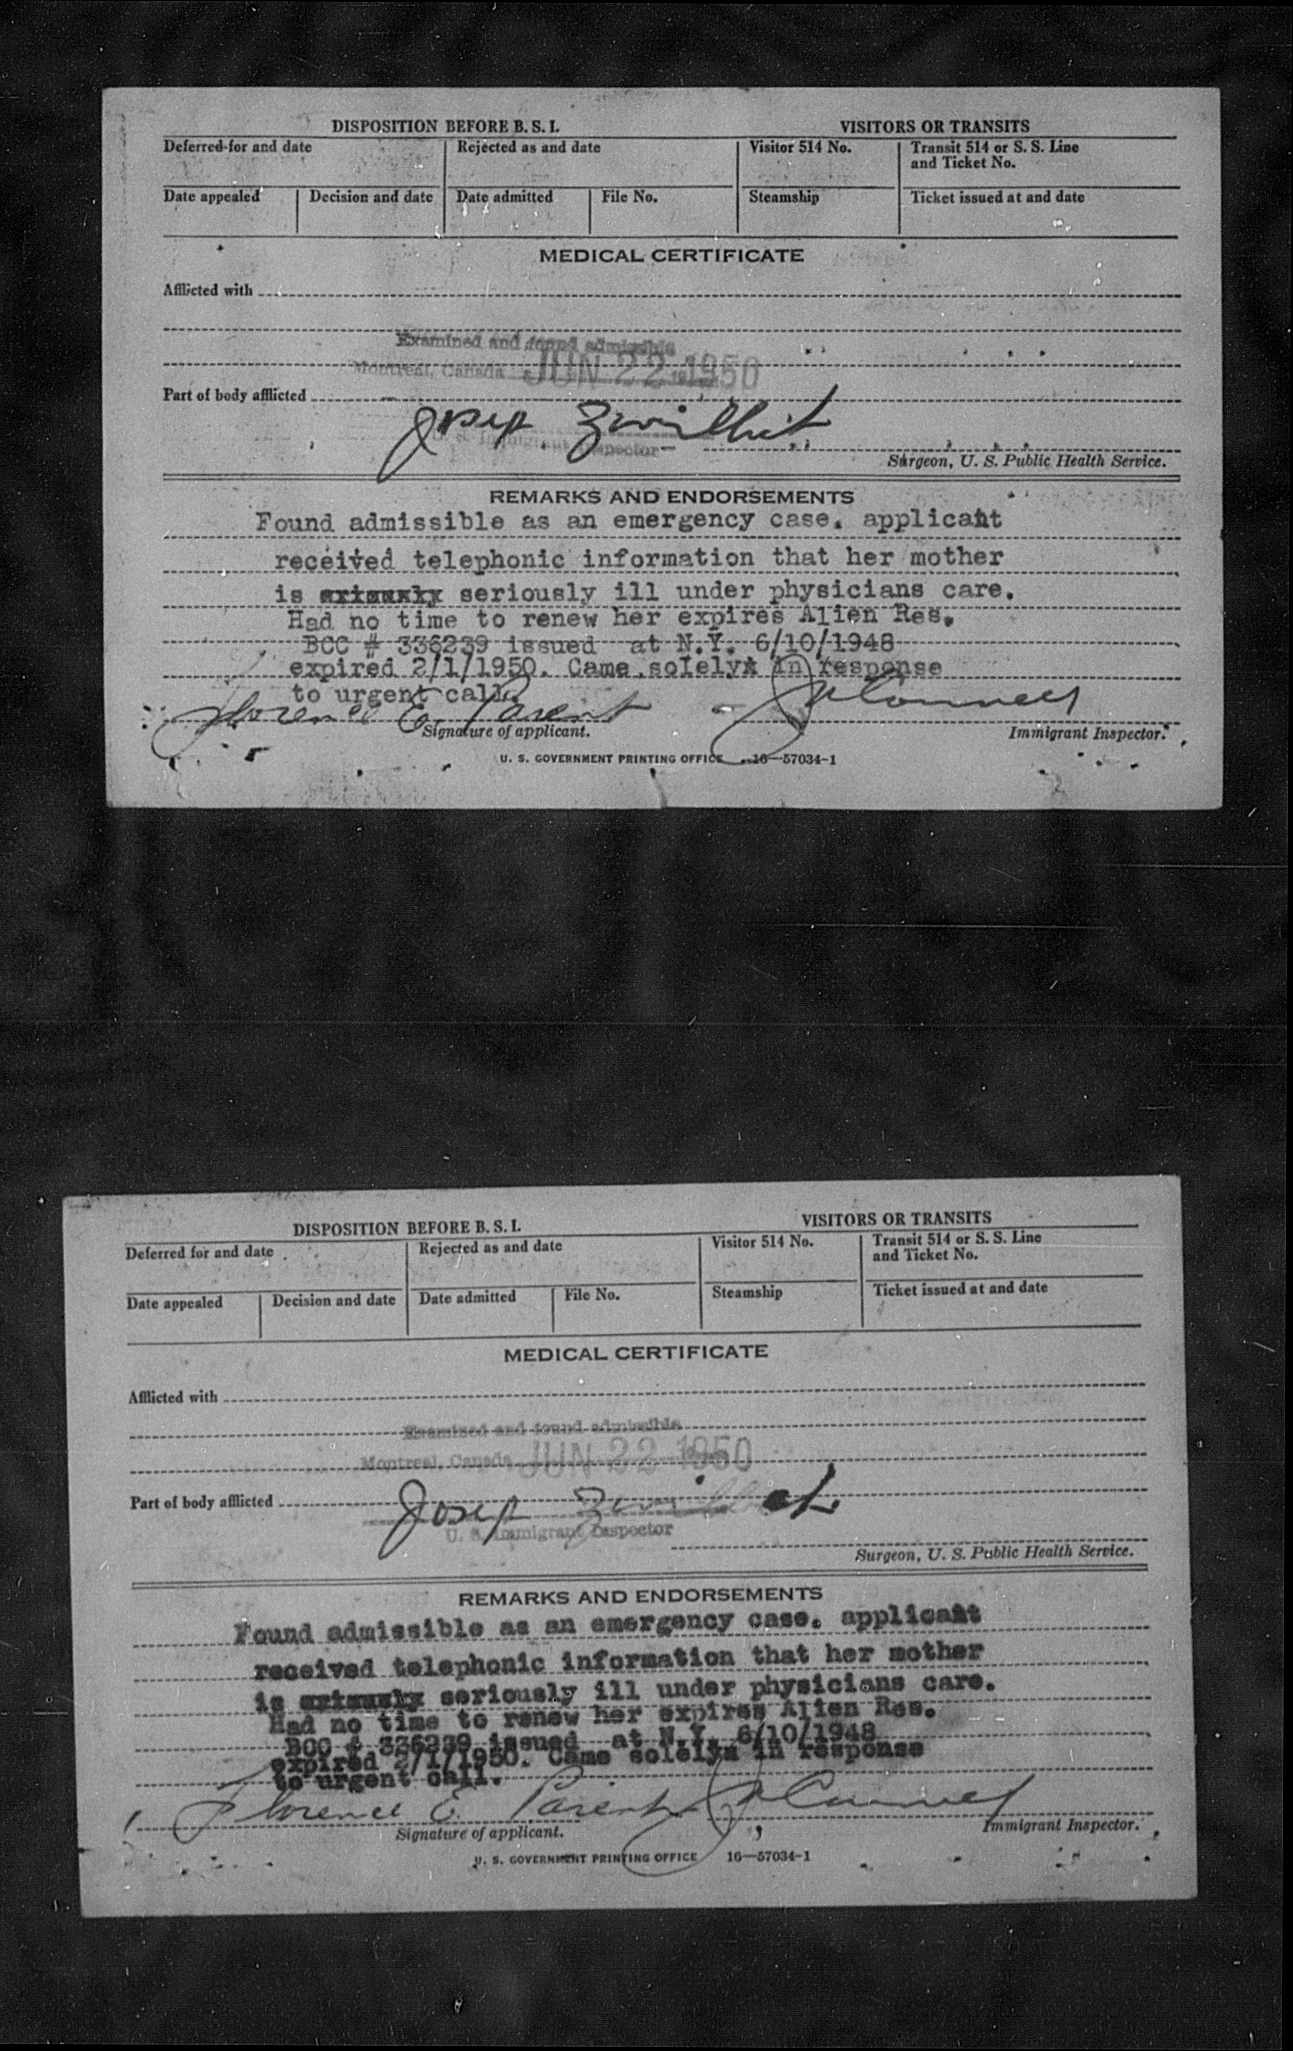 DISPOSITION BEFORE B. S. I.
VISITORS OR TRANSITS
Deferred for and date
Rejected as and date
Visitor 514 No.
Transit 514 or S. S. Line
and Ticket No.
Date appealed
Decision and date
Date admitted
File No.
Steamship
Ticket issued at and date
MEDICAL CERTIFICATE
Afflicted with
Examined and found admissible
Montreal, Canada JUN 22 1950
Part of body afflicted
Josep
U. S. Immigrant Inspector
Surgeon, U. S. Public Health Service.
REMARKS AND ENDORSEMENTS
Found admissible as an emergency case. applicant
received telephonic information that her mother
is seriously ill under physicians care.
Had no time to renew her expires Alien Res.
BCC # 336239 issued at N.Y. 6/10/1948
expired 2/1/1950. Came solely in response
to urgent call.
Florence E. Parent
Signature of applicant.
Immigrant Inspector.
U. S. GOVERNMENT PRINTING OFFICE 16—57034-1
DISPOSITION BEFORE B. S. I.
VISITORS OR TRANSITS
Deferred for and date
Rejected as and date
Visitor 514 No.
Transit 514 or S. S. Line
and Ticket No.
Date appealed
Decision and date
Date admitted
File No.
Steamship
Ticket issued at and date
MEDICAL CERTIFICATE
Afflicted with
Examined and found admissible
Montreal, Canada JUN 22 1950
Part of body afflicted
Josep
U. S. Immigrant Inspector
Surgeon, U. S. Public Health Service.
REMARKS AND ENDORSEMENTS
Found admissible as an emergency case. applicant
received telephonic information that her mother
is seriously ill under physicians care.
Had no time to renew her expires Alien Res.
BCC # 336239 issued at N.Y. 6/10/1948
expired 2/1/1950. Came solely in response
to urgent call.
Florence E. Parent
Signature of applicant.
Immigrant Inspector.
U. S. GOVERNMENT PRINTING OFFICE 16—57034-1